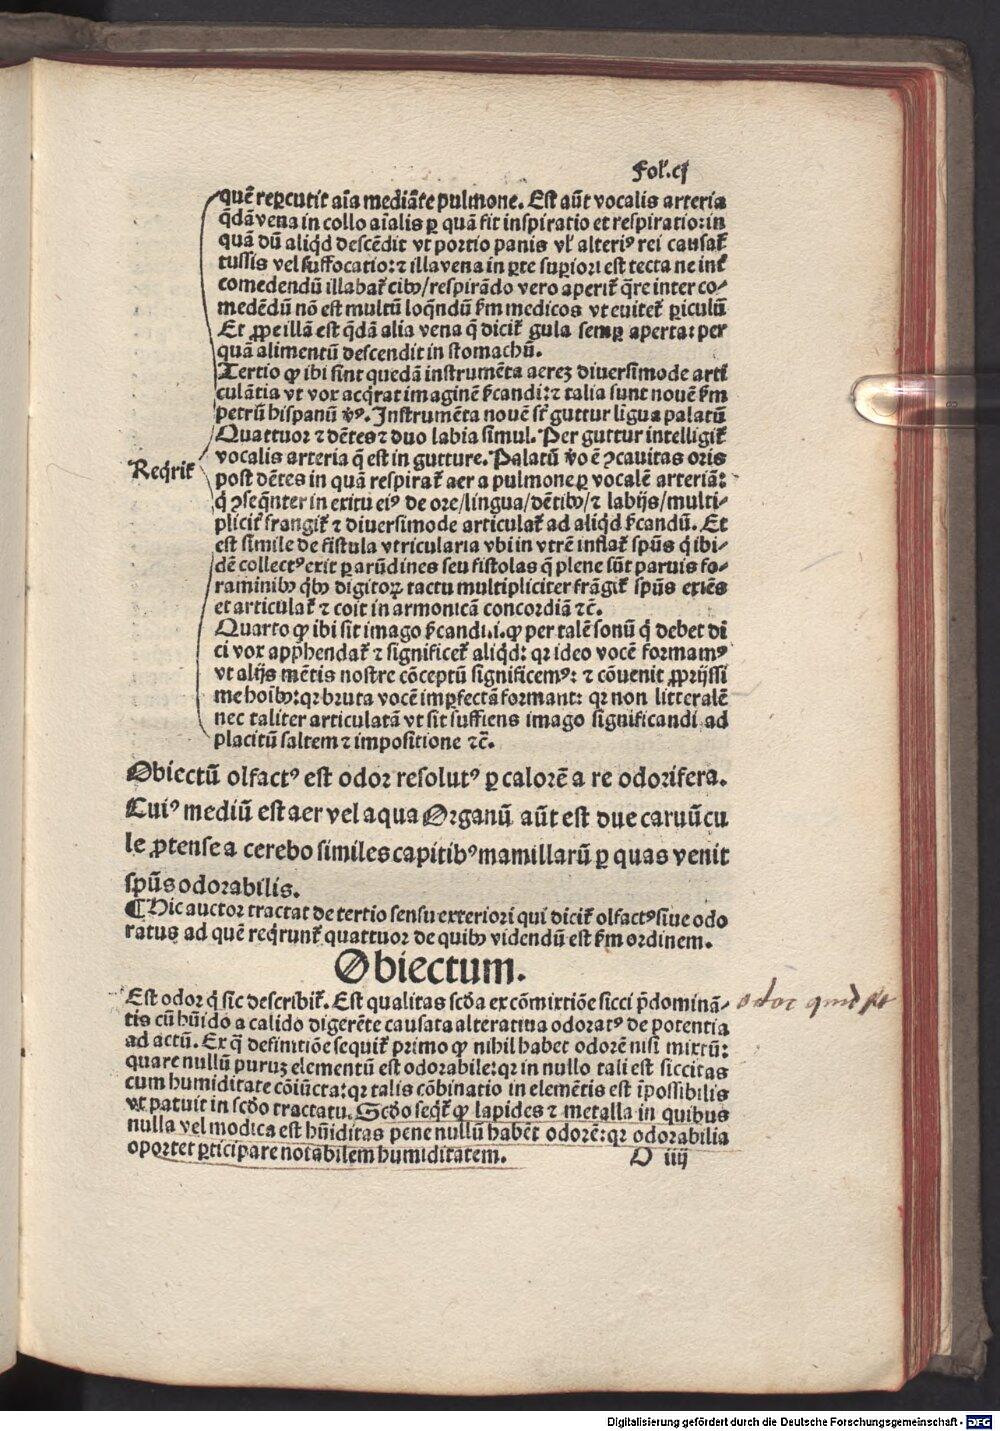 Fol.cj
quē reꝑcutit aīa mediāte pulmone. Est aūt vocalis arteria
q̄dā vena in collo aīalis ꝑ quā fit inspiratio et respiratio: in
quā dū aliqͥd descēdit vt portio panis vl̓ alteriꝰ rei causat᷑
tussis vel suffocatio: ⁊ illa vena in ꝑte suꝑiori est tecta ne int᷑
comedendū illabat᷑ cibꝰ/ respirādo vero aperit᷑ q̄re inter co⸗
medēdū nō est multū loqͣndū ẜm medicos vt euitet᷑ ꝑiculū
Et ꝓpe illā est q̄dā alia vena q̄ dicit᷑ gula semꝑ aperta: per
quā alimentū descendit in stomachū.
Tertio ꝙ ibi sint quedā instrumēta aereꝫ diuersimode arti
culātia vt vox acqͥrat imaginē ẜcandi: ⁊ talia sunt nouē ẜm
petrū hispanū v̓ꝰ. Instrumēta nouē st᷑ guttur lingua palatū
Quattuor ⁊ dētes ⁊ duo labia simul. Per guttur intelligit᷑
vocalis arteria q̄ est in gutture. Palatū v̓o ē ꝯcauitas oris
Reqͥrit᷑
post dētes in quā respirat᷑ aer a pulmone ꝑ vocalē arteriā:
qͥ ꝯseqͣnter in exitu eiꝰ de ore/ lingua/ dētibꝰ/ ⁊ labijs/ multi⸗
plicit᷑ frangit᷑ ⁊ diuersimode articulat᷑ ad aliqͥd ẜcandū. Et
est simile de fistula vtricularia vbi in vtrē inflat᷑ spūs qͥ ibi⸗
dē collectꝰ exit ꝑ arūdines seu fistolas q̄ plene sūt paruis fo⸗
raminibꝰ qͥbꝰ digitoꝝ tactu multipliciter frāgit᷑ spūs exiēs
et articulat᷑ ⁊ coit in armonicā concordiā ⁊c̄.
Quarto ꝙ ibi sit imago ẜcandi.i. ꝙ per talē sonū qͥ debet di
ci vox appͥhendat᷑ ⁊ significet᷑ aliqͥd: qꝛ ideo vocē formamꝰ
vt alijs mētis nostre cōceptū significemꝰ: ⁊ cōuenit ꝓprijssi
me hoībꝰ: qꝛ bruta vocē imꝑfectā formant: qꝛ non litteralē
nec taliter articulatā vt sit suffiens imago significandi ad
placitū saltem ⁊ impositione ⁊c̄.
Obiectū olfactꝰ est odor resolutꝰ ꝑ calorē a re odorifera.
Cuiꝰ mediū est aer vel aqua Organū aūt est due caruūcu
le ꝓtense a cerebo similes capitibꝰ mamillarū ꝑ quas venit
spūs odorabilis.
¶ Hic auctor tractat de tertio sensu exteriori qui dicit᷑ olfactꝰ siue odo
ratus ad quē reqͥrunt᷑ quattuor de quibꝰ videndū est ẜm ordinem.
Obiectum.
Est odor qͥ sic describit᷑. Est qualitas scd̓a ex cōmixtiōe sicci p̄dominā⸗
odor quid sit
tis cū hūido a calido digerēte causata alteratiua odoratꝰ de potentia
ad actū. Ex q̄ definitiōe sequit᷑ primo ꝙ nihil habet odorē nisi mixtū:
quare nullū puruꝫ elementū est odorabile: qꝛ in nullo tali est siccitas
cum humiditate cōiūcta: qꝛ talis cōbinatio in elemētis est īpossibilis
vt patuit in scd̓o tractatu. Scd̓o seqͥt᷑ ꝙ lapides ⁊ metalla in quibus
nulla vel modica est hūiditas pene nullū habēt odorē: qꝛ odorabilia
oportet ꝑticipare notabilem humiditatem.
O iiij
Digitalisierung gefördert durch die Deutsche Forschungsgemeinschaft - DFG